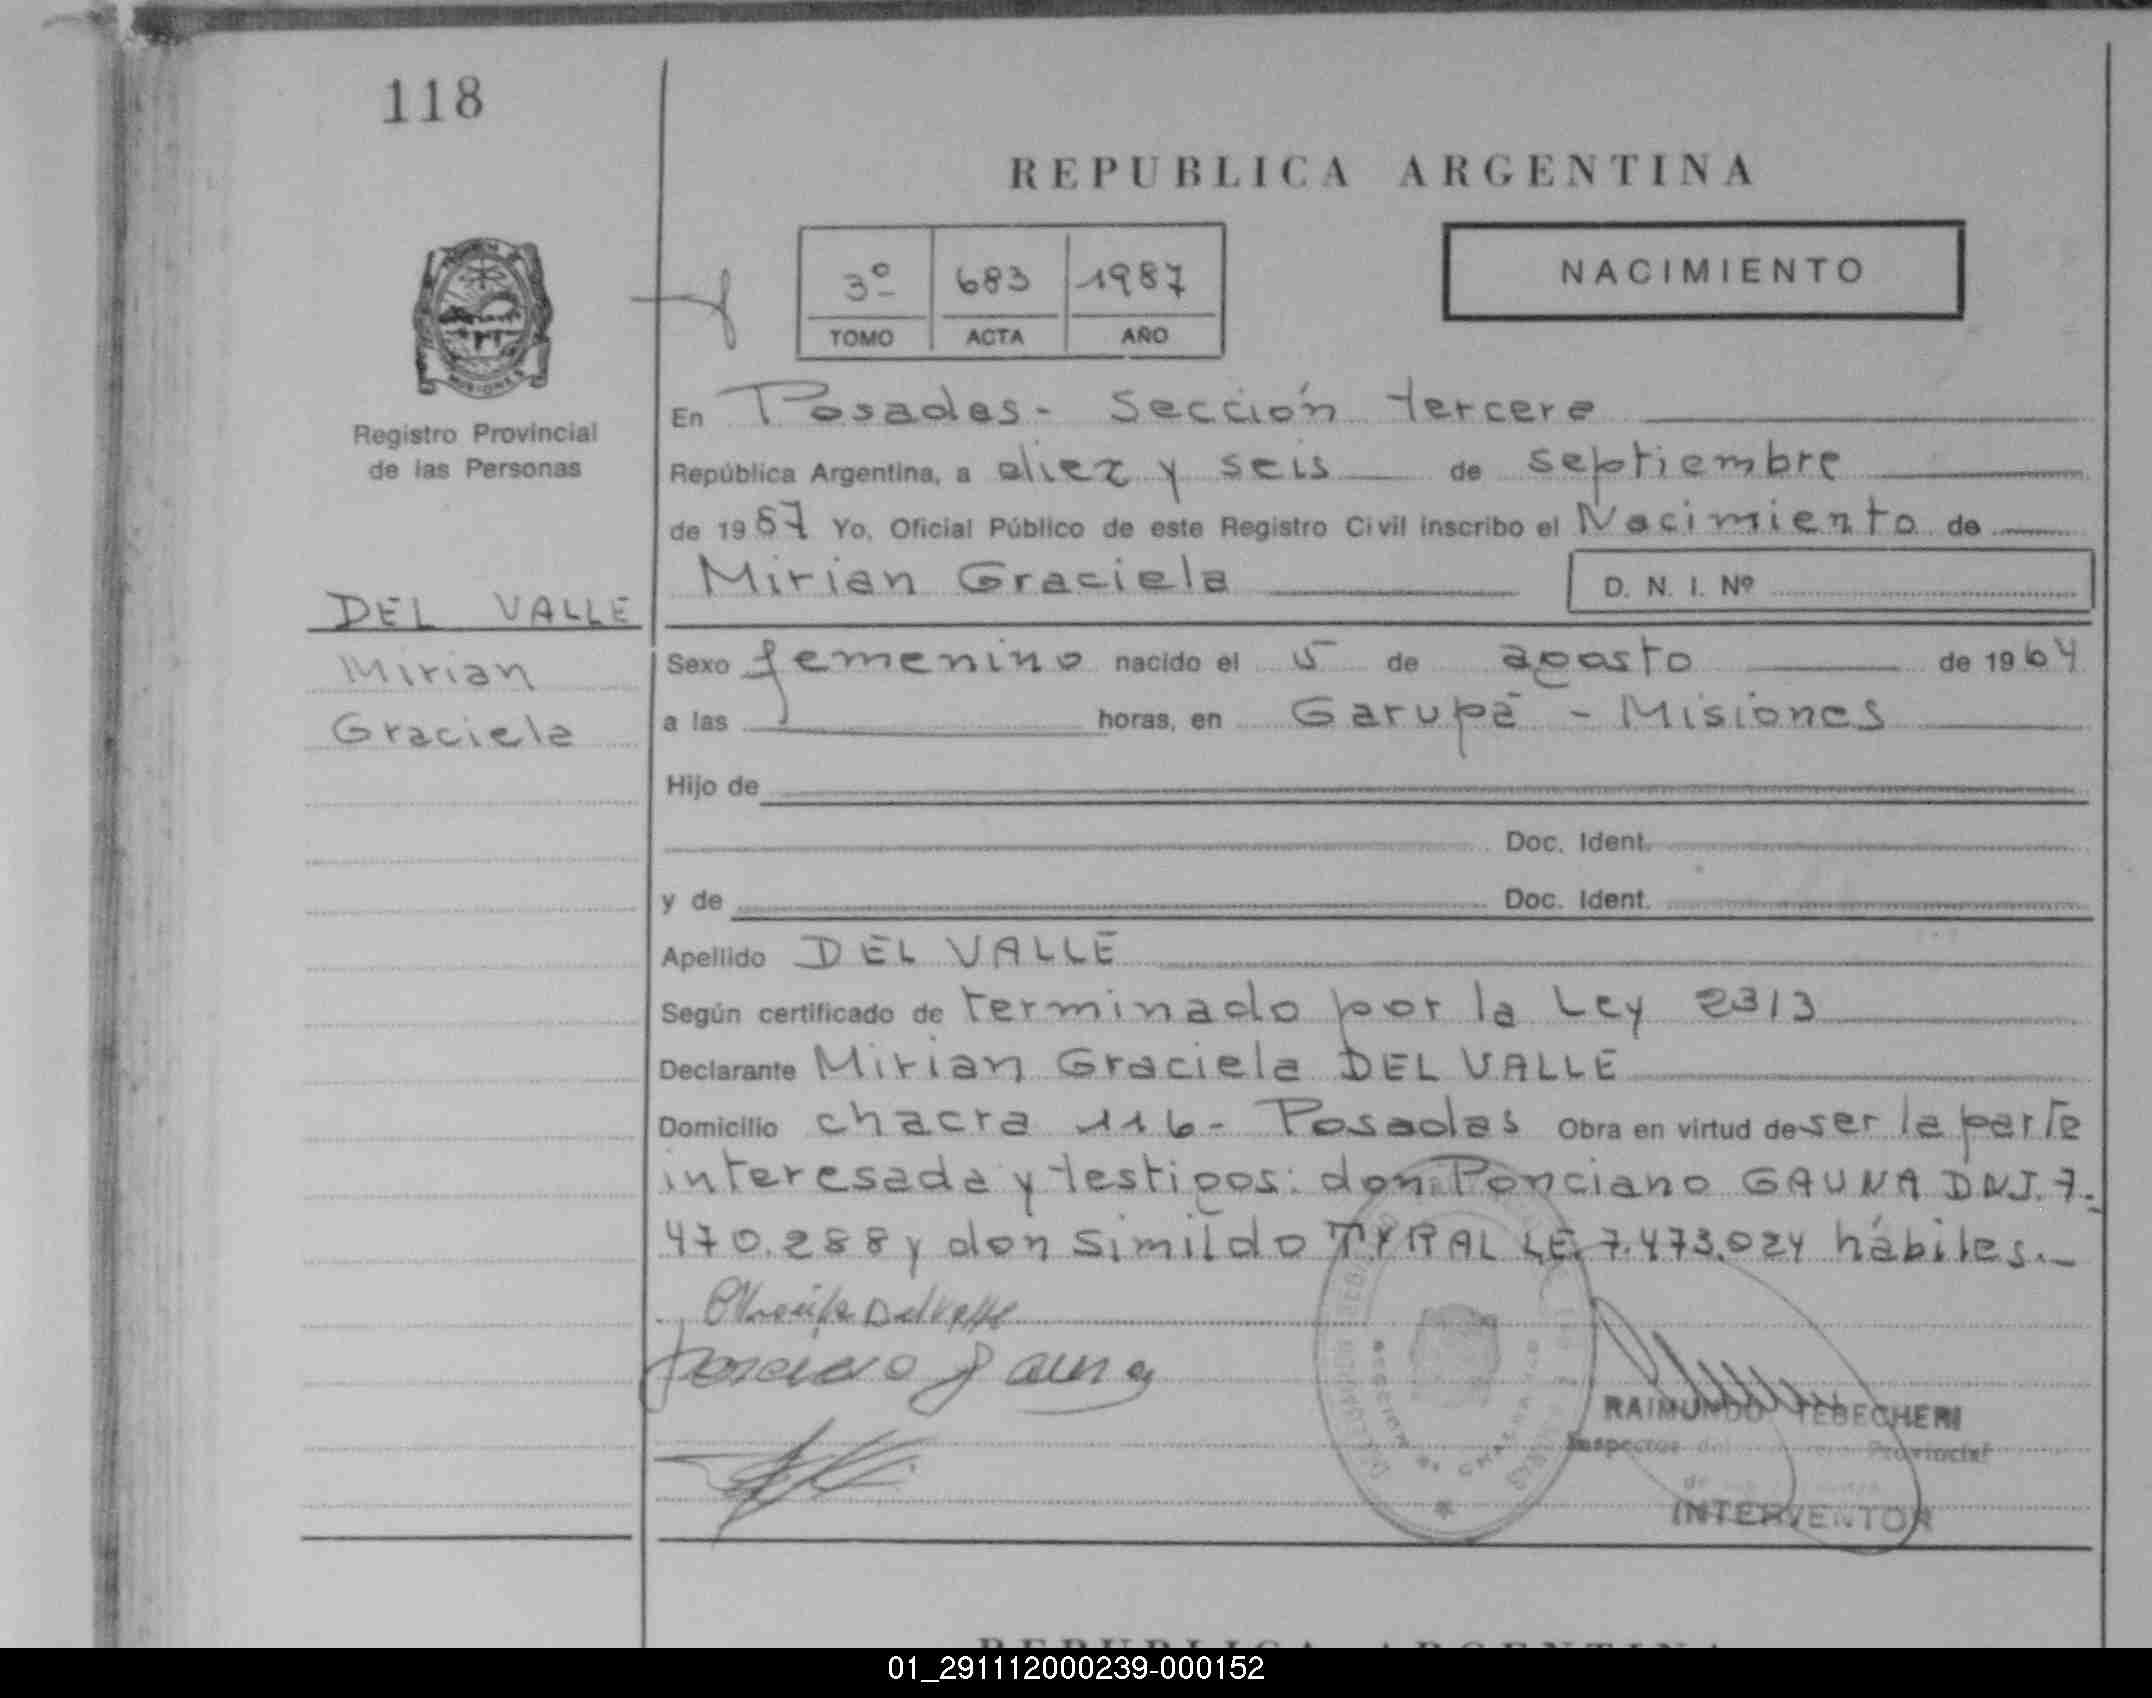 118
REPUBLICA ARGENTINA
3º 683 1987
TOMO ACTA AÑO
NACIMIENTO
MISIONES
Registro Provincial
de las Personas
En Posadas - Sección tercera
República Argentina, a diez y seis de septiembre
de 1987 Yo, Oficial Público de este Registro Civil inscribo el Nacimiento de
Mirian Graciela D. N. I. Nº
DEL VALLE
Mirian
Graciela
Sexo femenino nacido el 5 de agosto de 1964
a las horas, en Garupá - Misiones
Hijo de
Doc. Ident.
y de Doc. Ident.
Apellido DEL VALLE
Según certificado de terminado por la Ley 2313
Declarante Mirian Graciela DEL VALLE
Domicilio chacra 116 - Posadas Obra en virtud de ser la parte
interesada y testigos: don Ponciano GAUNA DNI. 7.
470.288 y don Simildo TYRAL LE. 7.473.024 hábiles.
Ponciano Gauna
RAIMUNDO TEBECHERI
Inspector del Provincial
de
INTERVENTOR
REPUBLICA ARGENTINA
01_291112000239-000152